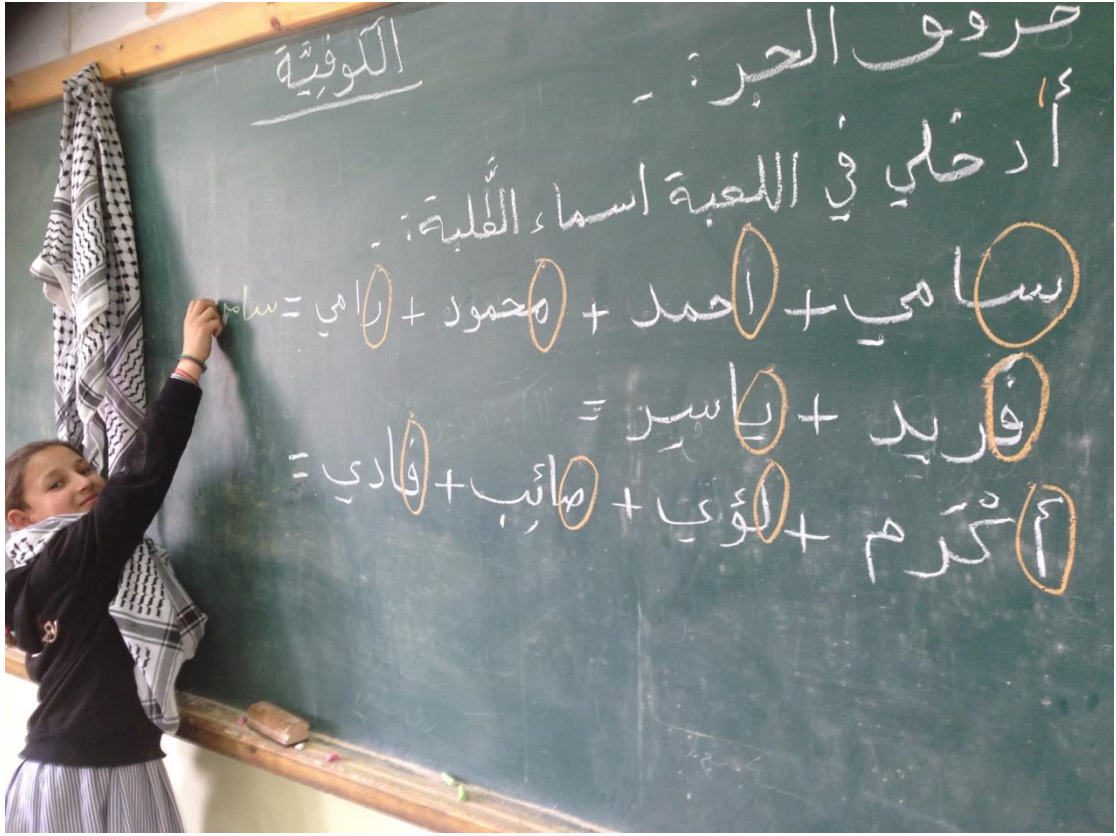 الكوفِيَّة
حروف الجر :-
أدخلي في اللعبة اسماء الطَّلبة :-
سامي + احمد + محمود + رامي = سامر
فريد + ياسير =
أكْرَم + لؤي + صائِب + فادي =